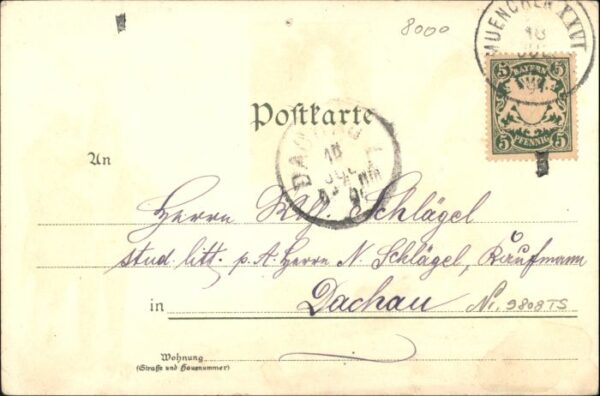 8000
MUENCHEN XXVI
18
JUL
5 BAYERN 5
5 PFENNIG 5
Postkarte
DACHAU
18
JUL
An
Herrn Schlägel
stud. litt. p. A. Herrn N. Schlägel, Kaufmann
in Dachau Nr. 9808TS
Wohnung
(Straße und Hausnummer)